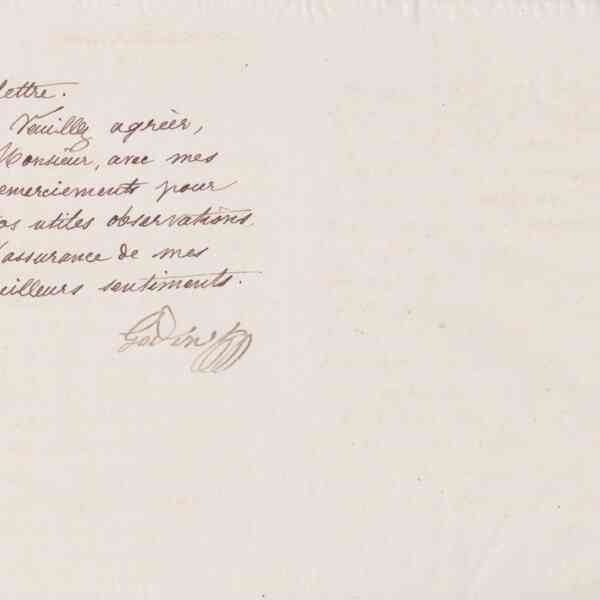 lettre.
Veuillez agréer,
Monsieur, avec mes
remerciements pour
vos utiles observations
l'assurance de mes
meilleurs sentiments.
Godin